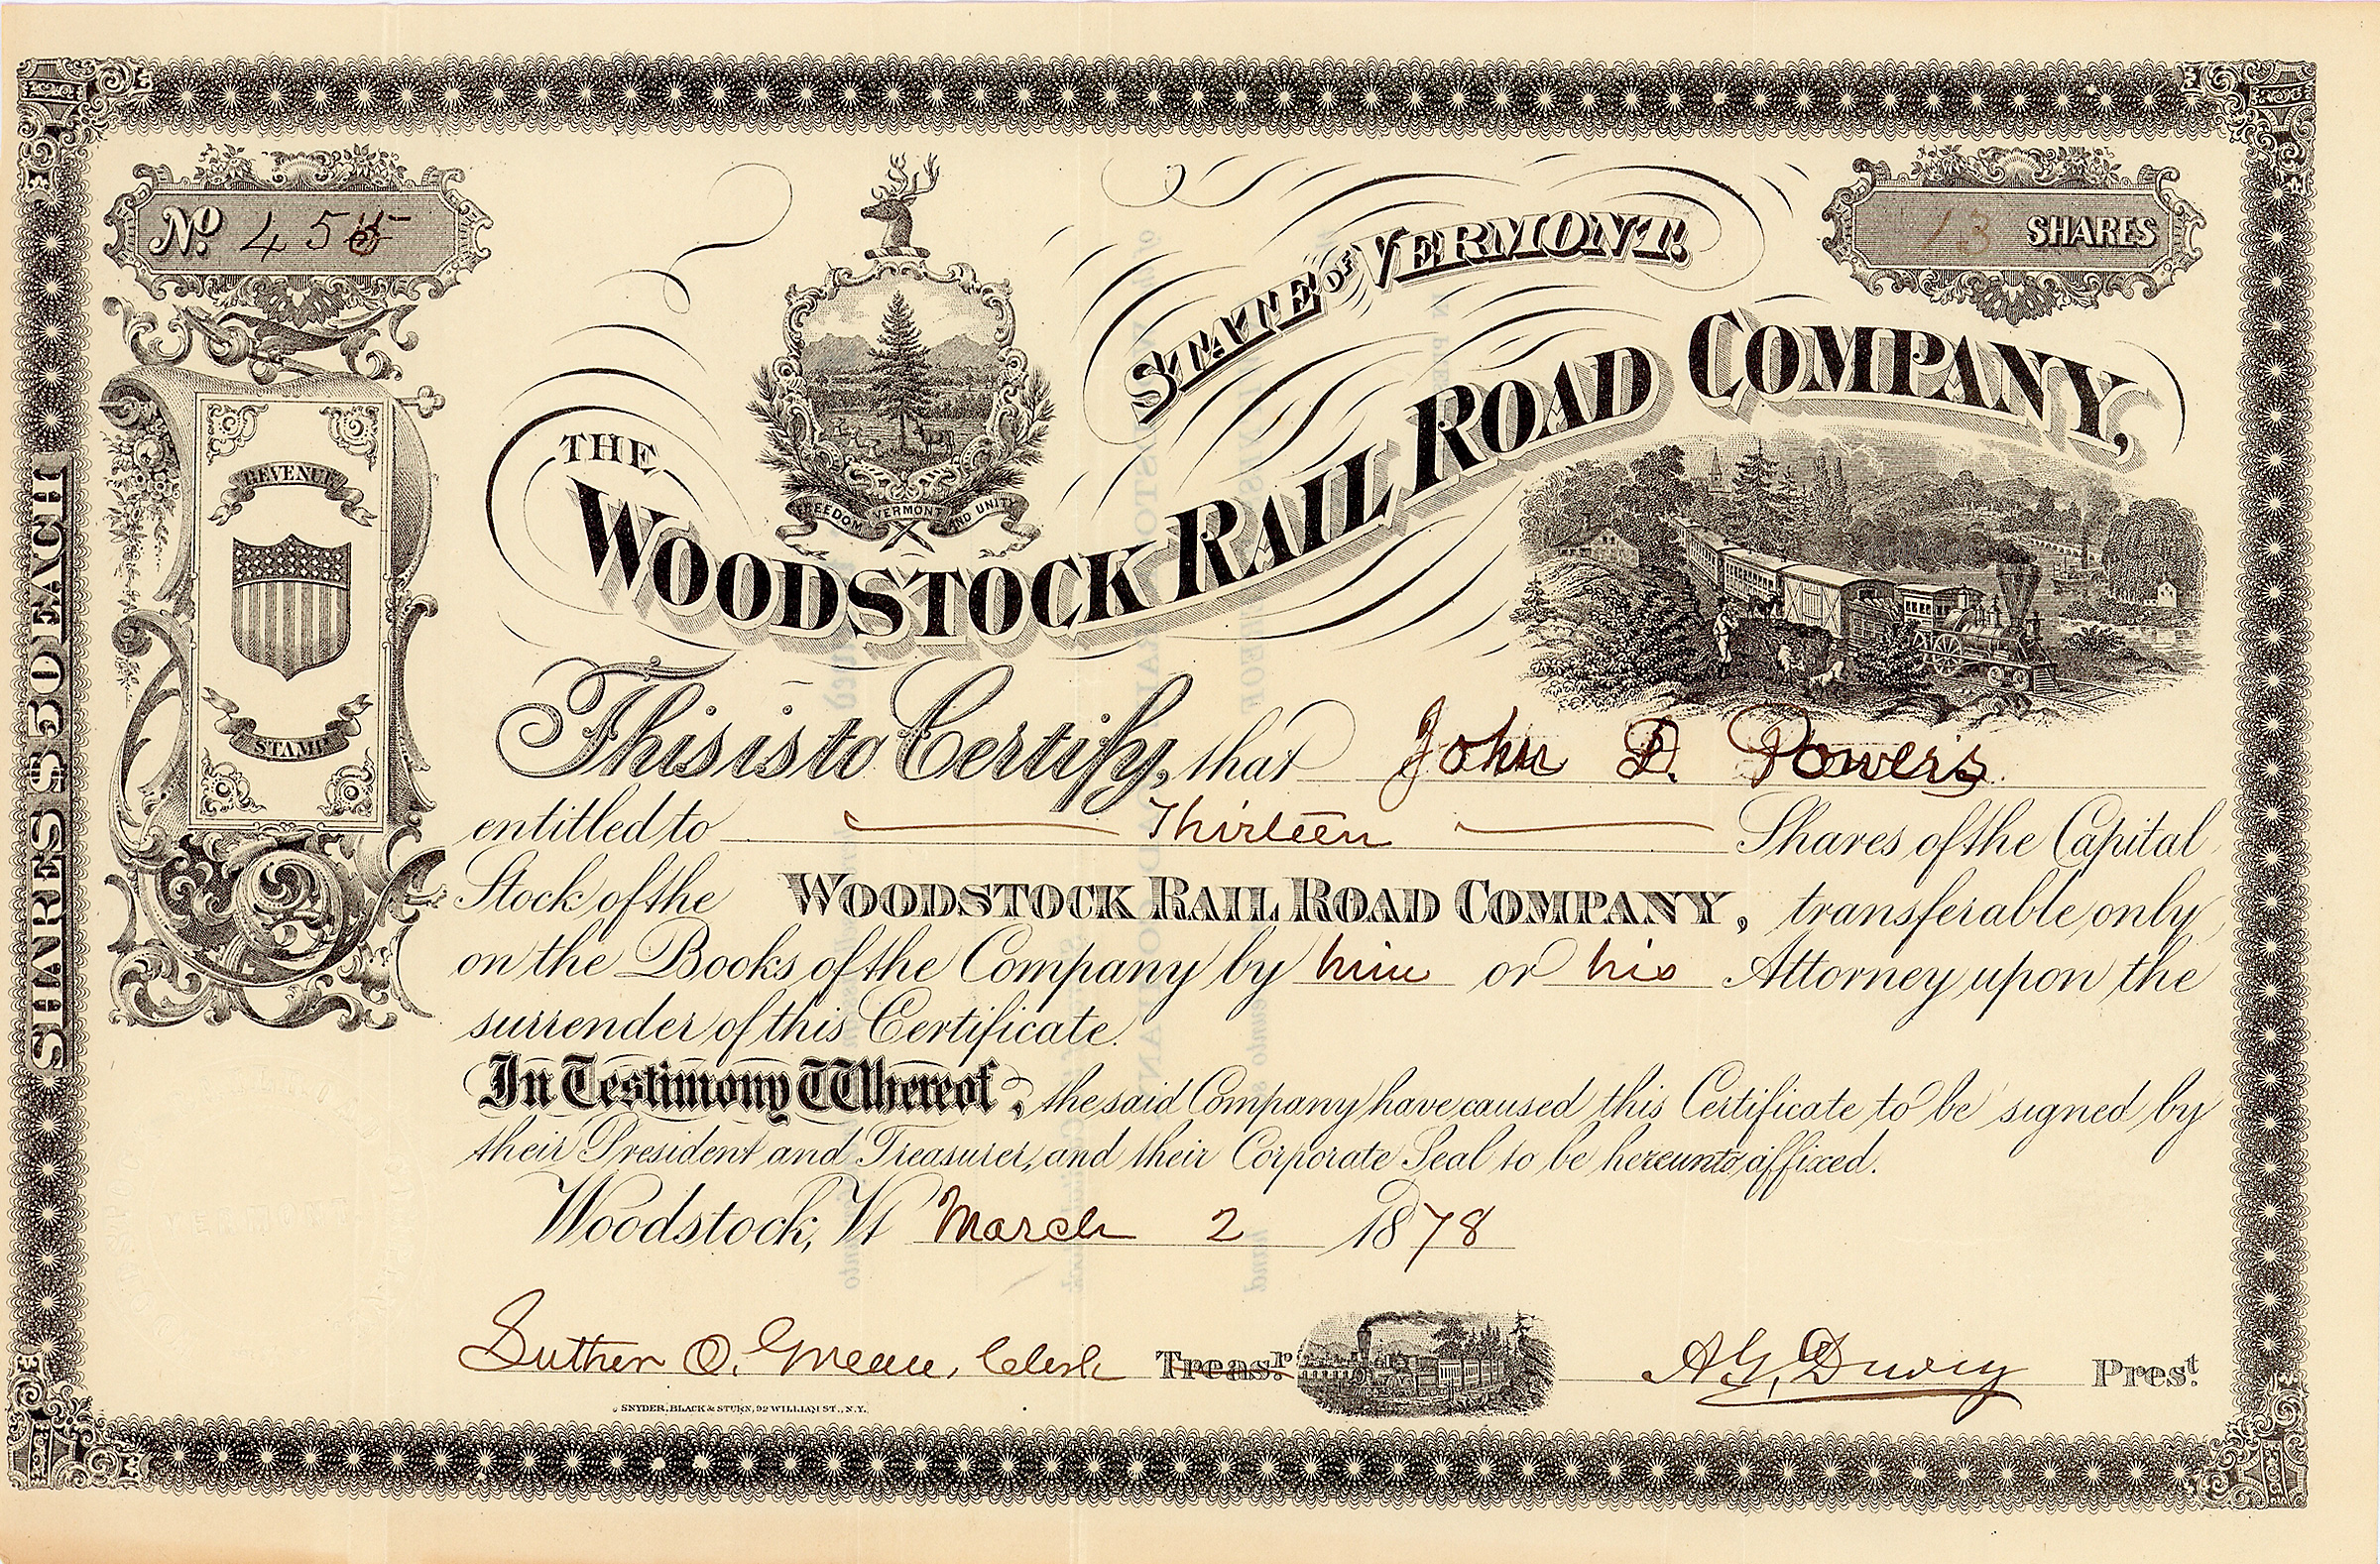 No. 455
13 SHARES
STATE OF VERMONT.
THE
WOODSTOCK RAIL ROAD COMPANY,
FREEDOM VERMONT AND UNITY
REVENUE
STAMP
SHARES $50 EACH
This is to Certify, that John D. Powers
entitled to Thirteen Shares of the Capital
Stock of the WOODSTOCK RAIL ROAD COMPANY, transferable only
on the Books of the Company by him or his Attorney upon the
surrender of this Certificate.
In Testimony Whereof, the said Company have caused this Certificate to be signed by
their President and Treasurer, and their Corporate Seal to be hereunto affixed.
Woodstock, Vt March 2 1878
Luther O. Greene, Clerk Treasr.
A.G. Dewey Prest.
SNYDER, BLACK & STURN, 92 WILLIAM ST., N.Y.
VERMONT